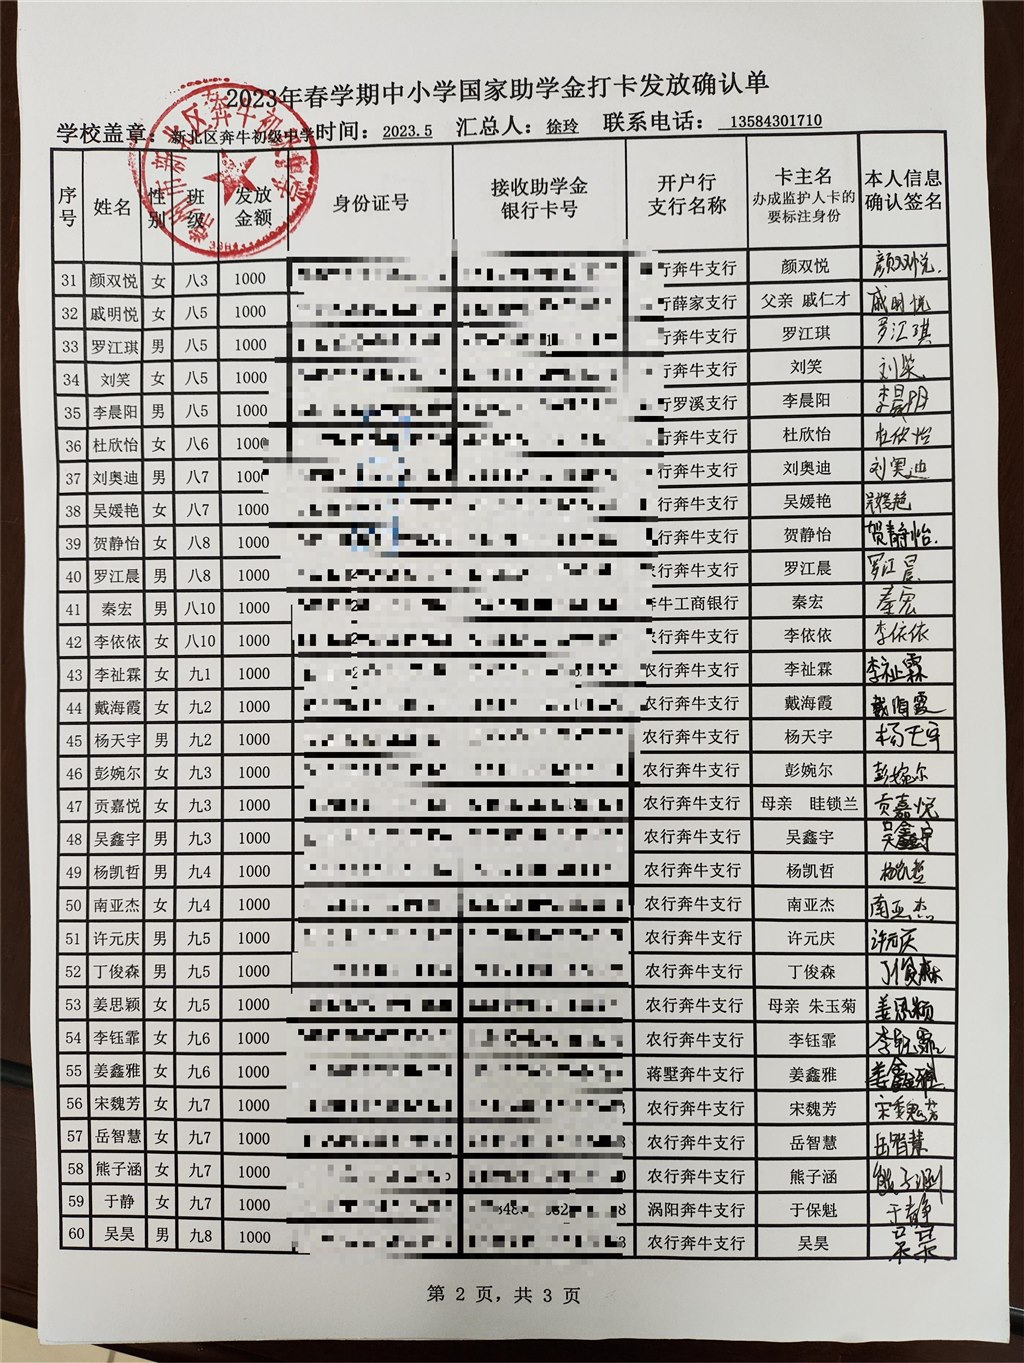 2023年春学期中小学国家助学金打卡发放确认单
学校盖章：新北区奔牛初级中学时间：2023.5 汇总人：徐玲 联系电话：13584301710
序号 姓名 性别 班级 发放金额 身份证号 接收助学金银行卡号 开户行支行名称 卡主名办成监护人卡的要标注身份 本人信息确认签名
31 颜双悦 女 八3 1000 行奔牛支行 颜双悦 颜双悦.
32 戚明悦 女 八5 1000 行薛家支行 父亲 戚仁才 戚明悦
33 罗江琪 男 八5 1000 行奔牛支行 罗江琪 罗江琪
34 刘笑 女 八5 1000 行奔牛支行 刘笑 刘笑
35 李晨阳 男 八5 1000 行罗溪支行 李晨阳 李晨阳
36 杜欣怡 女 八6 1000 行奔牛支行 杜欣怡 杜欣怡
37 刘奥迪 男 八7 1000 行奔牛支行 刘奥迪 刘奥迪
38 吴媛艳 女 八7 1000 行奔牛支行 吴媛艳 吴媛艳
39 贺静怡 女 八8 1000 行奔牛支行 贺静怡 贺静怡.
40 罗江晨 男 八8 1000 农行奔牛支行 罗江晨 罗江晨
41 秦宏 男 八10 1000 奔牛工商银行 秦宏 秦宏
42 李依依 女 八10 1000 农行奔牛支行 李依依 李依依
43 李祉霖 女 九1 1000 农行奔牛支行 李祉霖 李祉霖
44 戴海霞 女 九2 1000 农行奔牛支行 戴海霞 戴海霞
45 杨天宇 男 九2 1000 农行奔牛支行 杨天宇 杨天宇
46 彭婉尔 女 九3 1000 农行奔牛支行 彭婉尔 彭婉尔
47 贡嘉悦 女 九3 1000 农行奔牛支行 母亲 眭锁兰 贡嘉悦
48 吴鑫宇 男 九3 1000 农行奔牛支行 吴鑫宇 吴鑫宇
49 杨凯哲 男 九4 1000 农行奔牛支行 杨凯哲 杨凯哲
50 南亚杰 女 九4 1000 农行奔牛支行 南亚杰 南亚杰
51 许元庆 男 九5 1000 农行奔牛支行 许元庆 许元庆
52 丁俊森 男 九5 1000 农行奔牛支行 丁俊森 丁俊森
53 姜思颖 女 九5 1000 农行奔牛支行 母亲 朱玉菊 姜思颖
54 李钰霏 女 九6 1000 农行奔牛支行 李钰霏 李钰霏
55 姜鑫雅 女 九6 1000 蒋墅奔牛支行 姜鑫雅 姜鑫雅
56 宋魏芳 女 九7 1000 农行奔牛支行 宋魏芳 宋魏芳
57 岳智慧 女 九7 1000 农行奔牛支行 岳智慧 岳智慧
58 熊子涵 女 九7 1000 农行奔牛支行 熊子涵 熊子涵
59 于静 女 九7 1000 涡阳奔牛支行 于保魁 于静
60 吴昊 男 九8 1000 农行奔牛支行 吴昊 吴昊
第 2 页，共 3 页